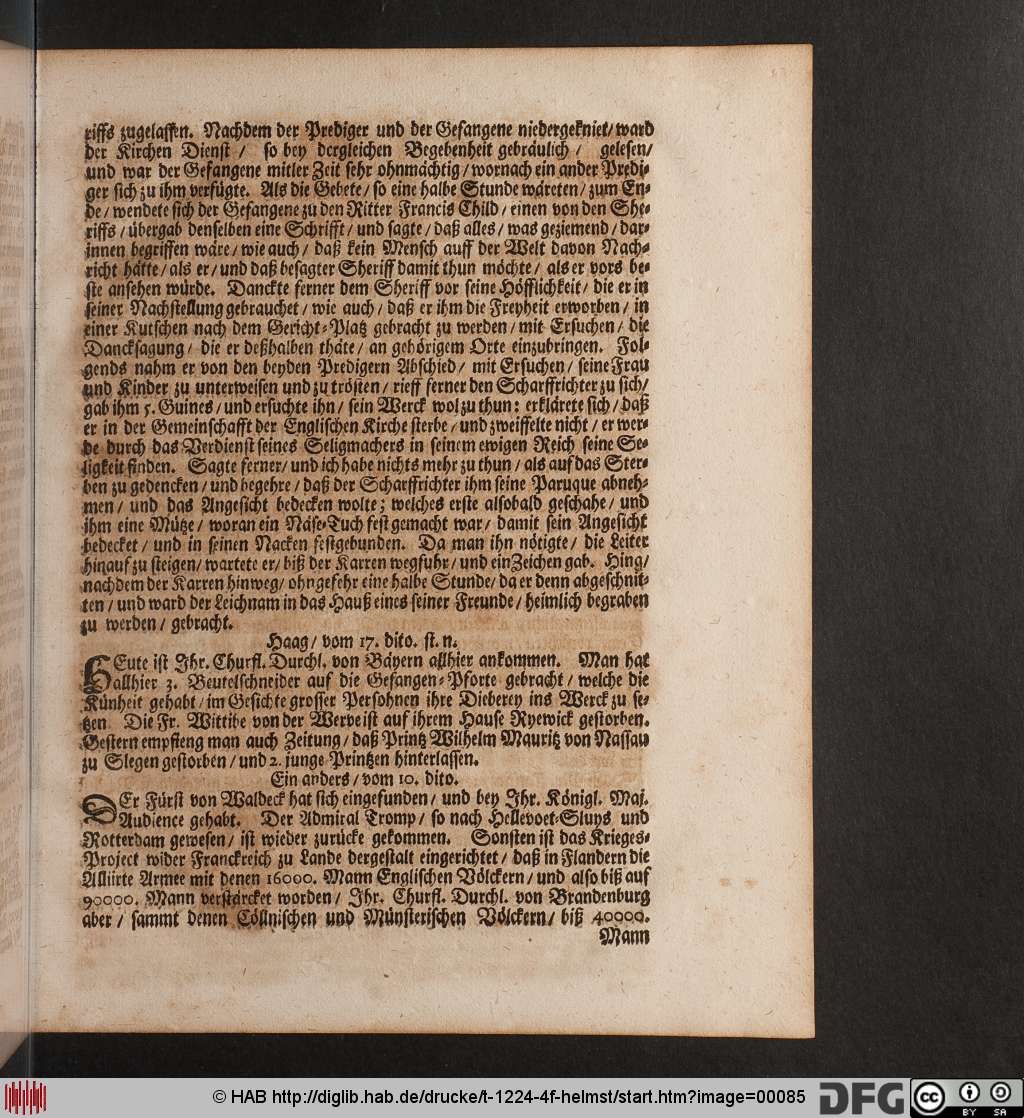 riffs zugelassen. Nachdem der Prediger und der Gefangene niedergekniet/ ward
der Kirchen Dienst / so bey dergleichen Begebenheit gebräulich / gelesen/
und war der Gefangene mitler Zeit sehr ohnmächtig / wornach ein ander Predi-
ger sich zu ihm verfügte. Als die Gebete / so eine halbe Stunde wäreten / zum En-
de / wendete sich der Gefangene zu den Ritter Francis Child / einen von den She-
riffs / übergab denselben eine Schrifft / und sagte / daß alles / was geziemend / dar-
innen begriffen wäre / wie auch / daß kein Mensch auff der Welt davon Nach-
richt hätte / als er / und daß besagter Sheriff damit thun möchte / als er vors be-
ste ansehen würde. Danckte ferner dem Sheriff vor seine Höfflichkeit / die er in
seiner Nachstellung gebrauchet / wie auch / daß er ihm die Freyheit erworben / in
einer Kutschen nach dem Gericht-Platz gebracht zu werden / mit Ersuchen / die
Dancksagung / die er deßhalben thäte / an gehörigem Orte einzubringen. Fol-
gends nahm er von den beyden Predigern Abschied / mit Ersuchen / seine Frau
und Kinder zu unterweisen und zu trösten / rieff ferner den Scharffrichter zu sich/
gab ihm 5. Guines / und ersuchte ihn / sein Werck wol zu thun: erklärete sich / daß
er in der Gemeinschafft der Englischen Kirche sterbe / und zweiffelte nicht / er wer-
de durch das Verdienst seines Seligmachers in seinem ewigen Reich seine Se-
ligkeit finden. Sagte ferner/ und ich habe nichts mehr zu thun / als auf das Ster-
ben zu gedencken / und begehre / daß der Scharffrichter ihm seine Paruque abneh-
men / und das Angesicht bedecken wolte; welches erste alsobald geschahe / und
ihm eine Mütze / woran ein Näse-Tuch fest gemacht war / damit sein Angesicht
bedecket / und in seinen Nacken festgebunden. Da man ihn nötigte / die Leiter
hinauf zu steigen / wartete er / biß der Karren wegfuhr / und ein Zeichen gab. Hing/
nachdem der Karren hinweg / ohngefehr eine halbe Stunde / da er denn abgeschnit-
ten / und ward der Leichnam in das Hauß eines seiner Freunde / heimlich begraben
zu werden / gebracht.
Haag / vom 17. dito. st. n.
HEute ist Ihr. Churfl. Durchl. von Bäyern allhier ankommen. Man hat
allhier 3. Beutelschneider auf die Gefangen-Pforte gebracht / welche die
Künheit gehabt / im Gesichte grosser Persohnen ihre Dieberey ins Werck zu se-
tzen Die Fr. Wittibe von der Werve ist auf ihrem Hause Ryewick gestorben.
Gestern empfieng man auch Zeitung / daß Printz Wilhelm Mauritz von Nassau
zu Siegen gestorben / und 2. junge Printzen hinterlassen.
Ein anders / vom 10. dito.
DEr Fürst von Waldeck hat sich eingefunden / und bey Ihr. Königl. Maj.
Audience gehabt. Der Admiral Tromp / so nach Hellevoet-Sluys und
Rotterdam gewesen / ist wieder zurücke gekommen. Sonsten ist das Krieges-
Project wider Franckreich zu Lande dergestalt eingerichtet / daß in Flandern die
Alliirte Armee mit denen 16000. Mann Englischen Völckern / und also biß auf
90000. Mann verstärcket worden / Ihr. Churfl. Durchl. von Brandenburg
aber / sammt denen Cöllnischen und Münsterischen Völckern / biß 40000.
Mann
© HAB http://diglib.hab.de/drucke/t-1224-4f-helmst/start.htm?image=00085
DFG
cc
BY SA